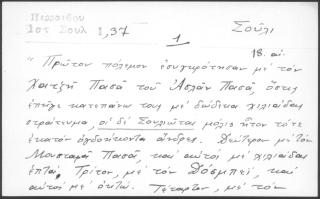 Περραιβου
Ιστ Σουλ 1,37
Σούλι
1
18. αι.
"Πρῶτον πόλεμον ἐσυγκρότησαν μέ τόν
Χατζῆ Πασᾶ τοῦ Ἀσλάν Πασᾶ, ὅστις
ἐπῆγε κατεπάνω τους μέ δώδεκα χιλιάδας
στράτευμα, οἱ δέ Σουλιῶται μόλις ἦτον τότε
ἑκατόν ὀγδοήκοντα ἄνδρες. Δεύτερον μέ τόν
Μουσταφᾶ Πασᾶ, καί αὐτοί μέ χιλιάδας
ἑπτά, Τρίτον, μέ τόν Δόσμπεϊ, καί
αὐτοί μέ ὀκτώ. Τέταρτον, μέ τόν